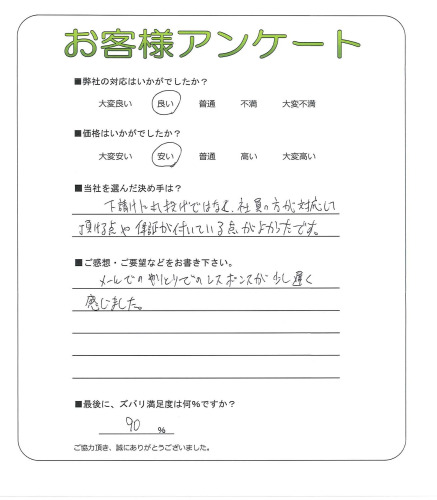 お客様アンケート
■弊社の対応はいかがでしたか?
大変良い 良い 普通 不満 大変不満
■価格はいかがでしたか?
大変安い 安い 普通 高い 大変高い
■当社を選んだ決め手は?
下請けに丸投げではなく、社員の方が対応して
頂ける点や保証が付いている点がよかったです。
■ご感想・ご要望などをお書き下さい。
メールでのやりとりでのレスポンスが少し遅く
感じました。
■最後に、ズバリ満足度は何%ですか?
90 %
ご協力頂き、誠にありがとうございました。